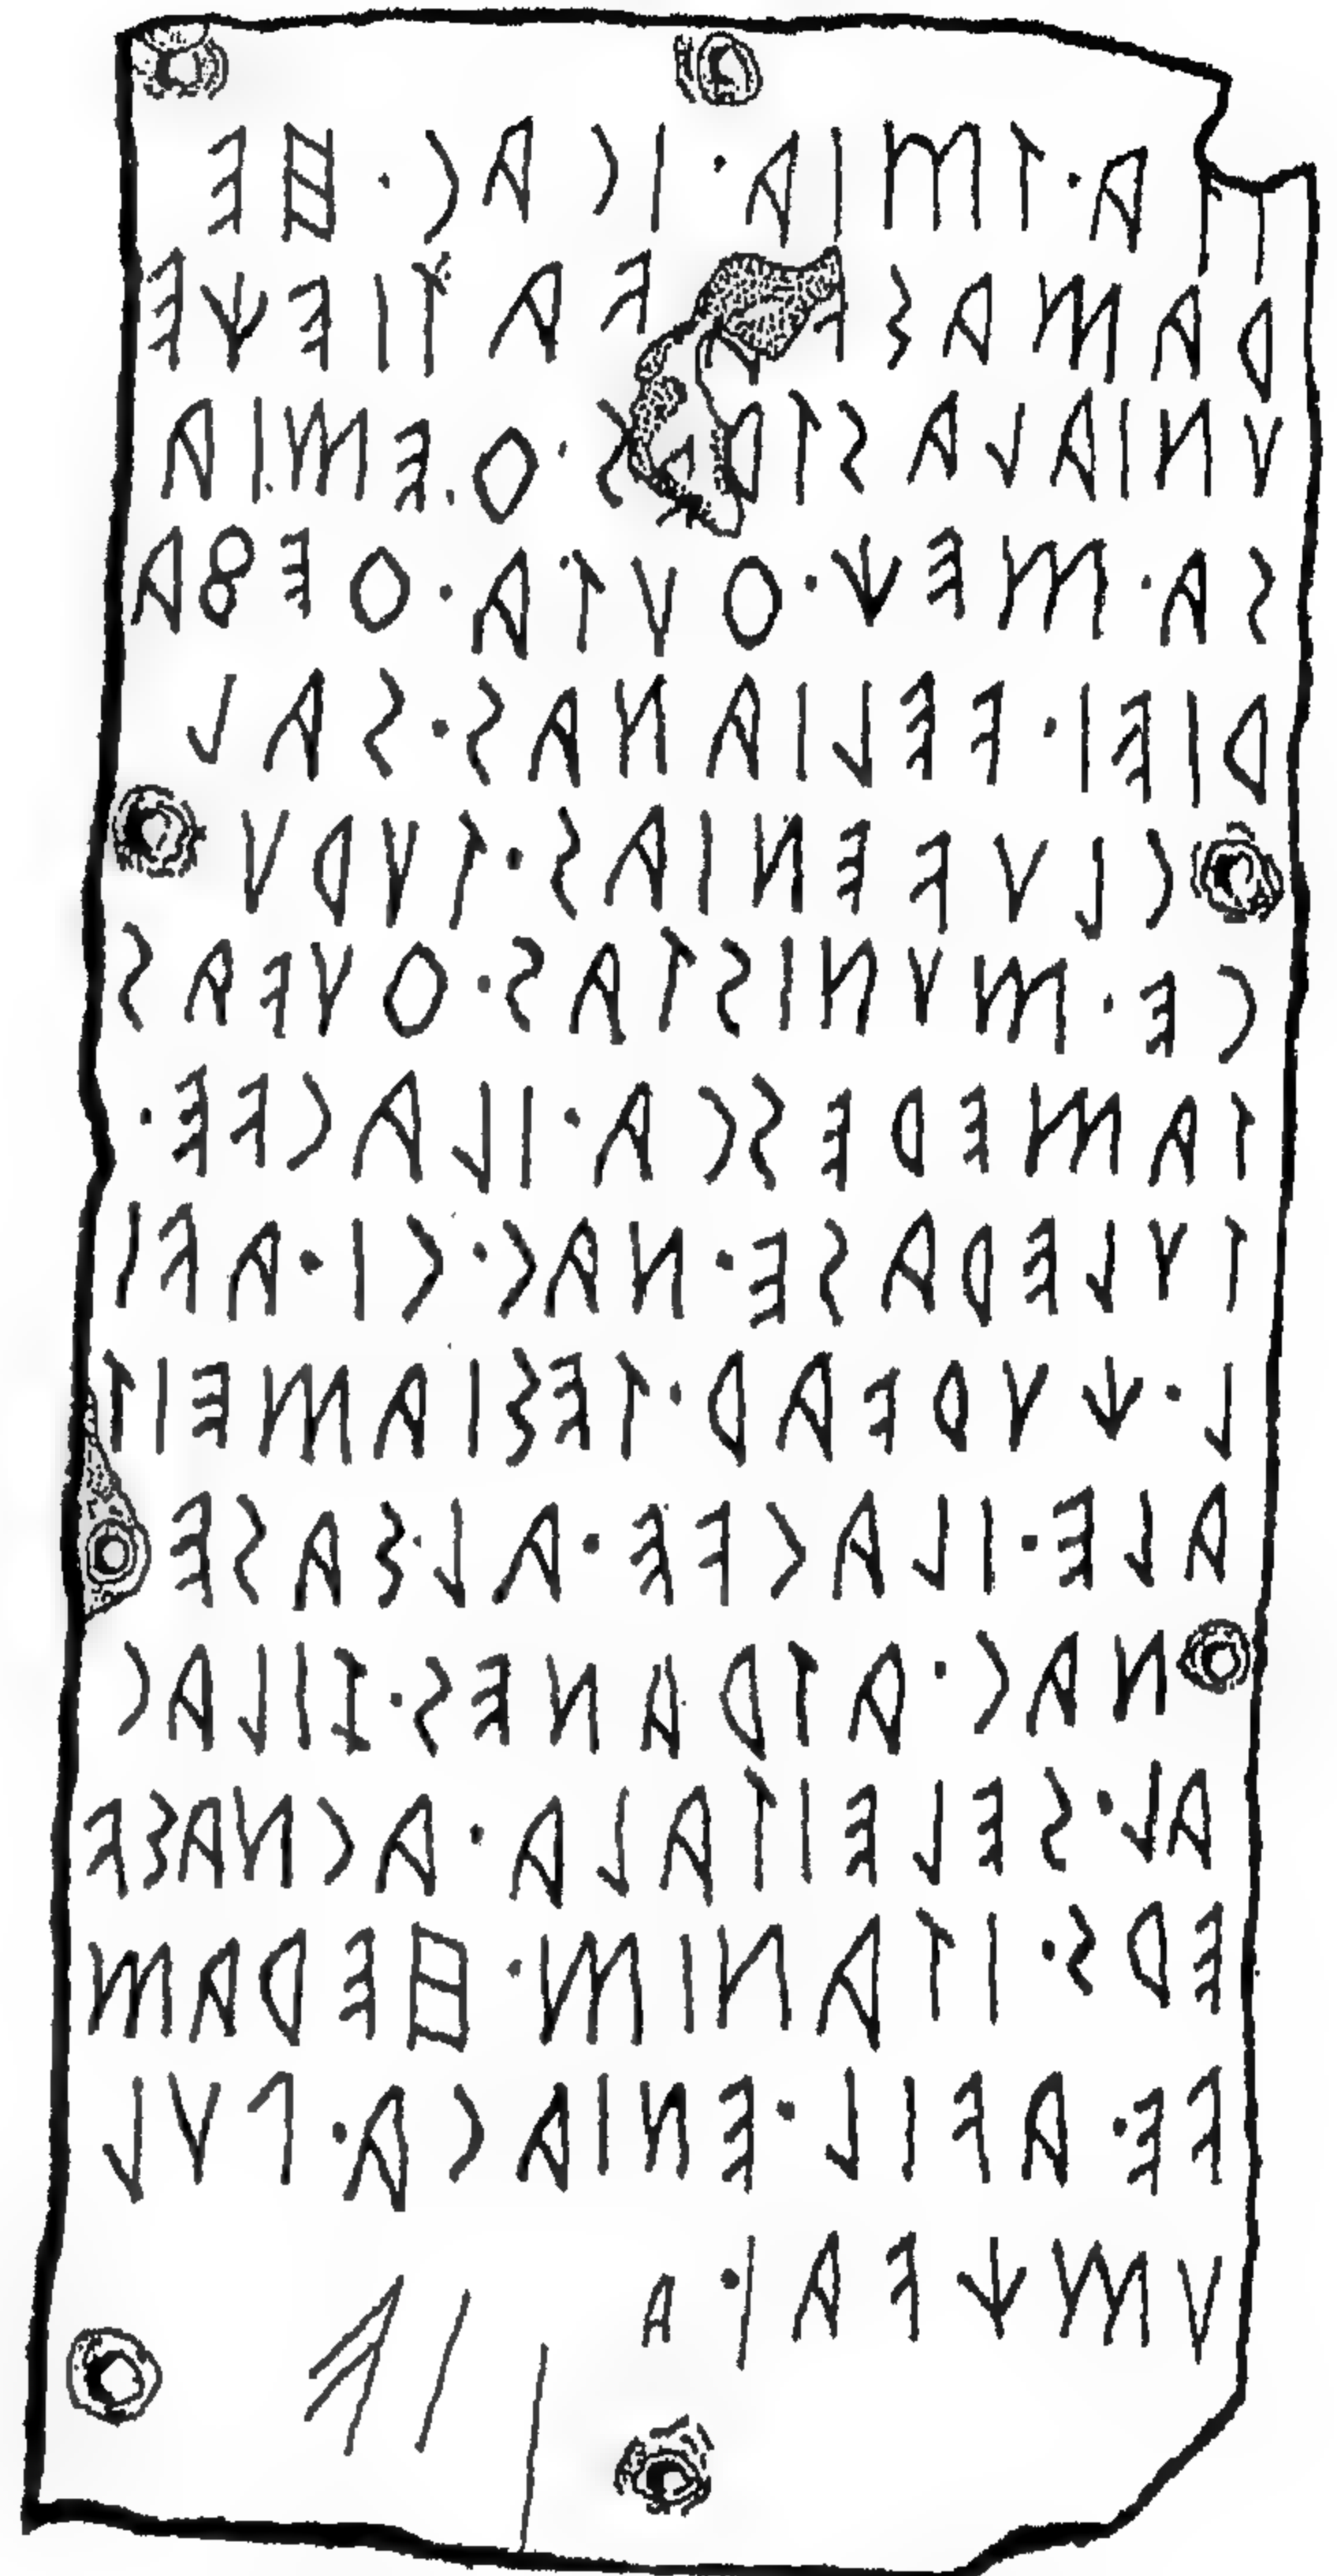 𐌉𐌕𐌀·𐌕𐌌𐌉𐌀·𐌉𐌂𐌀𐌂·𐌇𐌄
𐌓𐌀𐌌𐌀𐌔𐌅𐌀 𐌅𐌀𐌕𐌉𐌄𐌙𐌄
𐌖𐌍𐌉𐌀𐌋𐌀𐌔𐌕𐌓𐌄𐌔·𐌈𐌄𐌌𐌉𐌀
𐌔𐌀·𐌌𐌄𐌙·𐌈𐌖𐌕𐌀·𐌈𐌄𐌚𐌀
𐌓𐌉𐌄𐌉·𐌅𐌄𐌋𐌉𐌀𐌍𐌀𐌔·𐌔𐌀𐌋
𐌂𐌋𐌖𐌅𐌄𐌍𐌉𐌀𐌔·𐌕𐌖𐌓𐌖
𐌂𐌄·𐌌𐌖𐌍𐌉𐌔𐌕𐌀𐌔·𐌈𐌖𐌅𐌀𐌔
𐌕𐌀𐌌𐌄𐌓𐌄𐌔𐌂𐌀·𐌉𐌋𐌀𐌂𐌅𐌄·
𐌕𐌖𐌋𐌄𐌓𐌀𐌔𐌄·𐌍𐌀𐌂·𐌂𐌉·𐌀𐌅𐌉
𐌋·𐌙𐌖𐌓𐌅𐌀𐌓·𐌕𐌄𐌔𐌉𐌀𐌌𐌄𐌉𐌕
𐌀𐌋𐌄·𐌉𐌋𐌀𐌂𐌅𐌄·𐌀𐌋𐌔𐌀𐌔𐌄
𐌍𐌀𐌂·𐌀𐌕𐌓𐌀𐌍𐌄𐌔·𐌆𐌉𐌋𐌀𐌂
𐌀𐌋·𐌔𐌄𐌋𐌄𐌉𐌕𐌀𐌋𐌀·𐌀𐌂𐌍𐌀𐌔𐌅
𐌄𐌓𐌔·𐌉𐌕𐌀𐌍𐌉𐌌·𐌇𐌄𐌓𐌀𐌌
𐌅𐌄·𐌀𐌅𐌉𐌋·𐌄𐌍𐌉𐌀𐌂𐌀·𐌐𐌖𐌋
𐌖𐌌𐌙𐌅𐌀